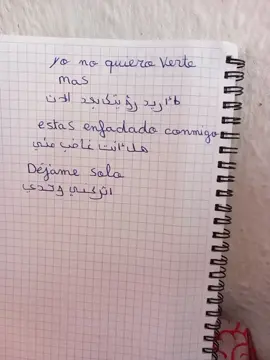 yo no quiero verte
mas
لا اريد رؤيتك بعد الان
estas enfadado conmigo
هل انت غاضب مني
Dejame solo
اتركني وحدي